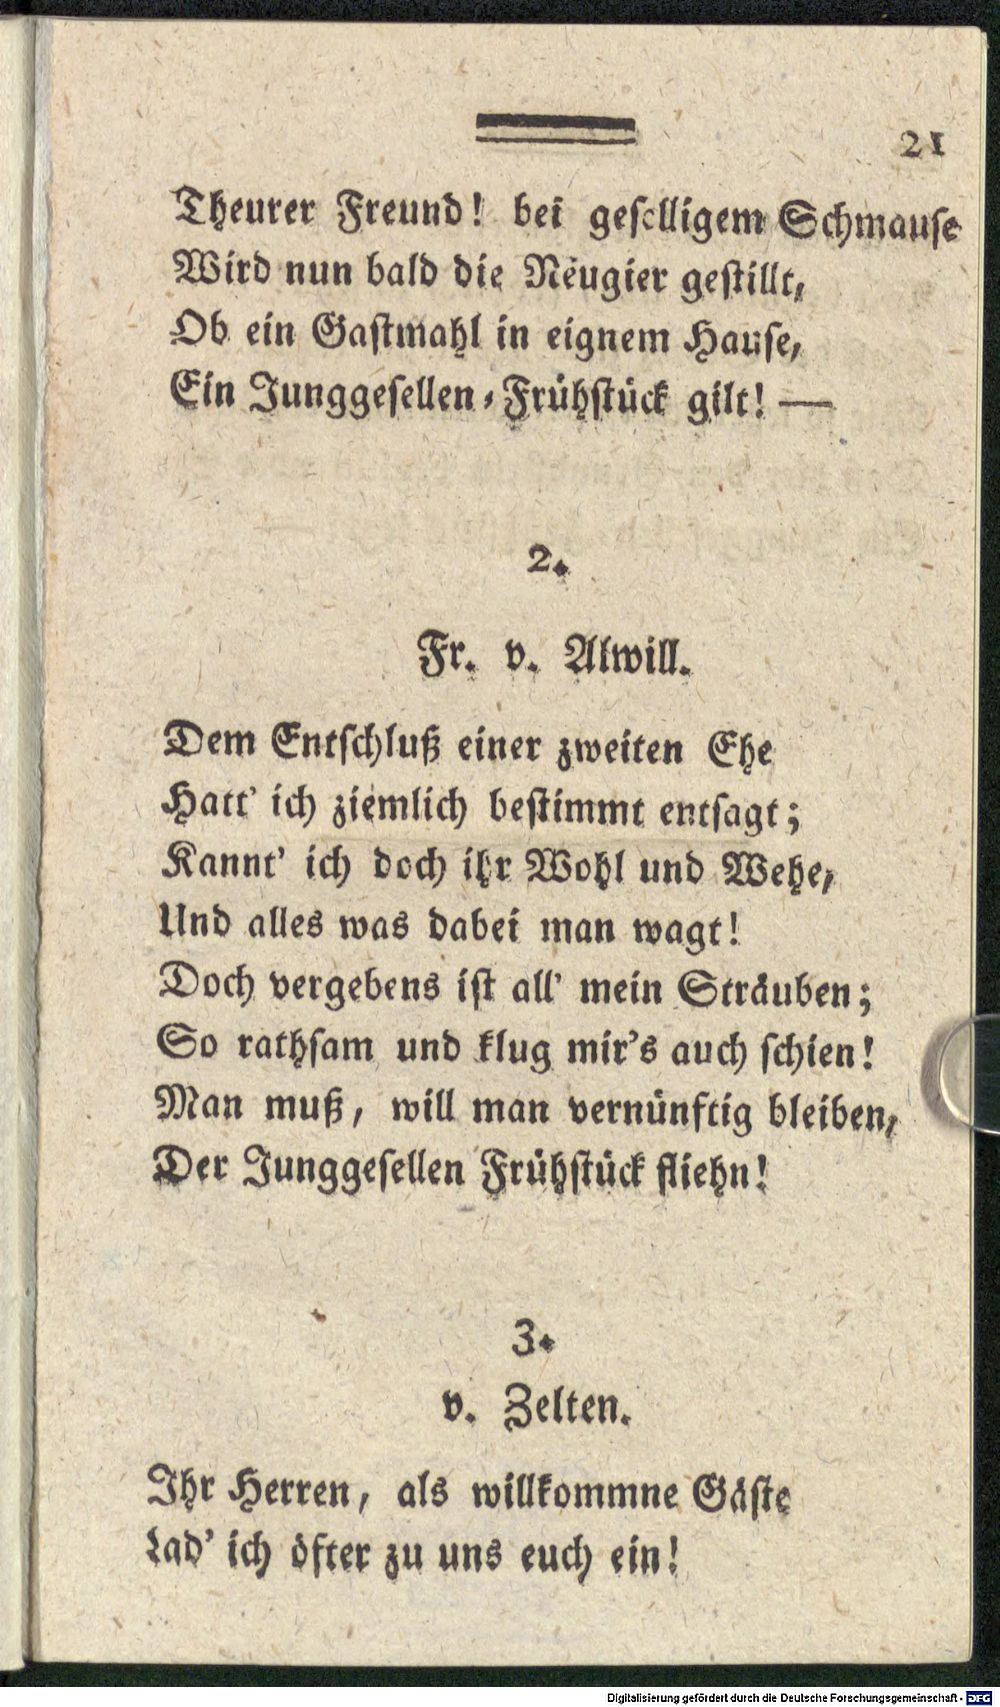 21
Theurer Freund! bei geselligem Schmause
Wird nun bald die Neugier gestillt,
Ob ein Gastmahl in eignem Hause,
Ein Junggesellen-Frühstück gilt! —
2.
Fr. v. Alwill.
Dem Entschluß einer zweiten Ehe
Hatt' ich ziemlich bestimmt entsagt;
Kannt' ich doch ihr Wohl und Wehe,
Und alles was dabei man wagt!
Doch vergebens ist all' mein Sträuben;
So rathsam und klug mir's auch schien!
Man muß, will man vernünftig bleiben,
Der Junggesellen Frühstück fliehn!
3.
v. Zelten.
Ihr Herren, als willkommne Gäste
Lad' ich öfter zu uns euch ein!
Digitalisierung gefördert durch die Deutsche Forschungsgemeinschaft - DFG